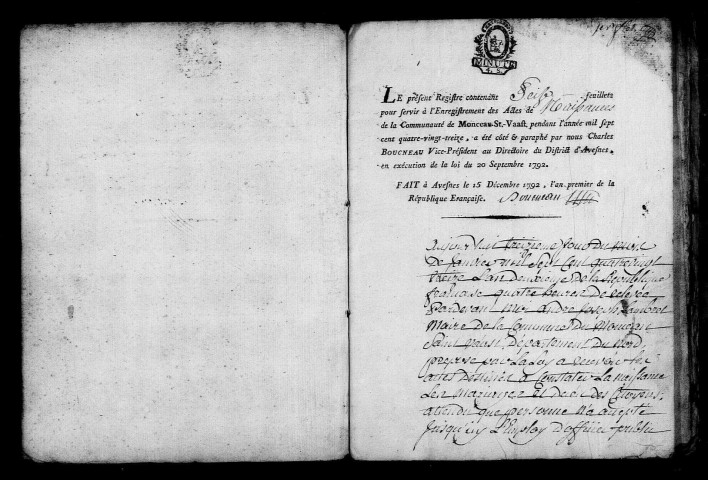 MINUTE
LE présent Registre contenant Seise feuillets
pour servir à l'Enregistrement des Actes de Naissances
de la Communauté de Monceau-St.-Vaast, pendant l'année mil sept
cent quatre-vingt-treize, a été côté & paraphé par nous Charles
BOUCNEAU Vice-Président au Directoire du District d'Avesnes,
en exécution de la loi du 20 Septembre 1792.
FAIT à Avesnes le 15 Décembre 1792, l'an premier de la
République Française. Boucneau
treizieme jour du mois
De Janvier mil sept Cent quatre vingt
treize L'an Deuxieme De la Republique
française quatre heures De relevée
Pardevant moy andre Joseph
Maire De la Commune Du Monceau
Saint vaast Departement Du Nord,
par La Loy a recevoir les
actes Destinés a Constater La naissance
Les mariages et Deces Des Citoyens,
attendu que personne N'a accepté
Jusqu'icy L'Employ D'officier public